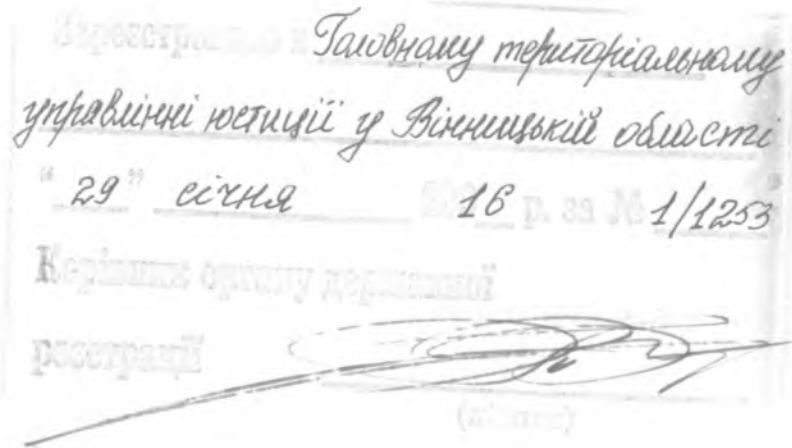 Зареєстровано в Головному територіальному
управлінні юстиції у Вінницькій області
"29" січня 2016 р. за № 1/1253
Керівник органу державної
реєстрації
(підпис)